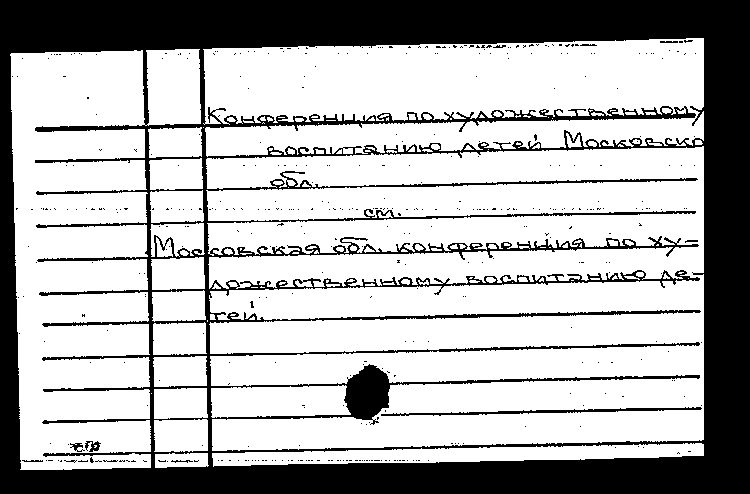 Конференция по художественному
воспитанию детей Московско
обл.
см.
Московская обл. конференция по ху=
дожественному воспитанию де=
тей.